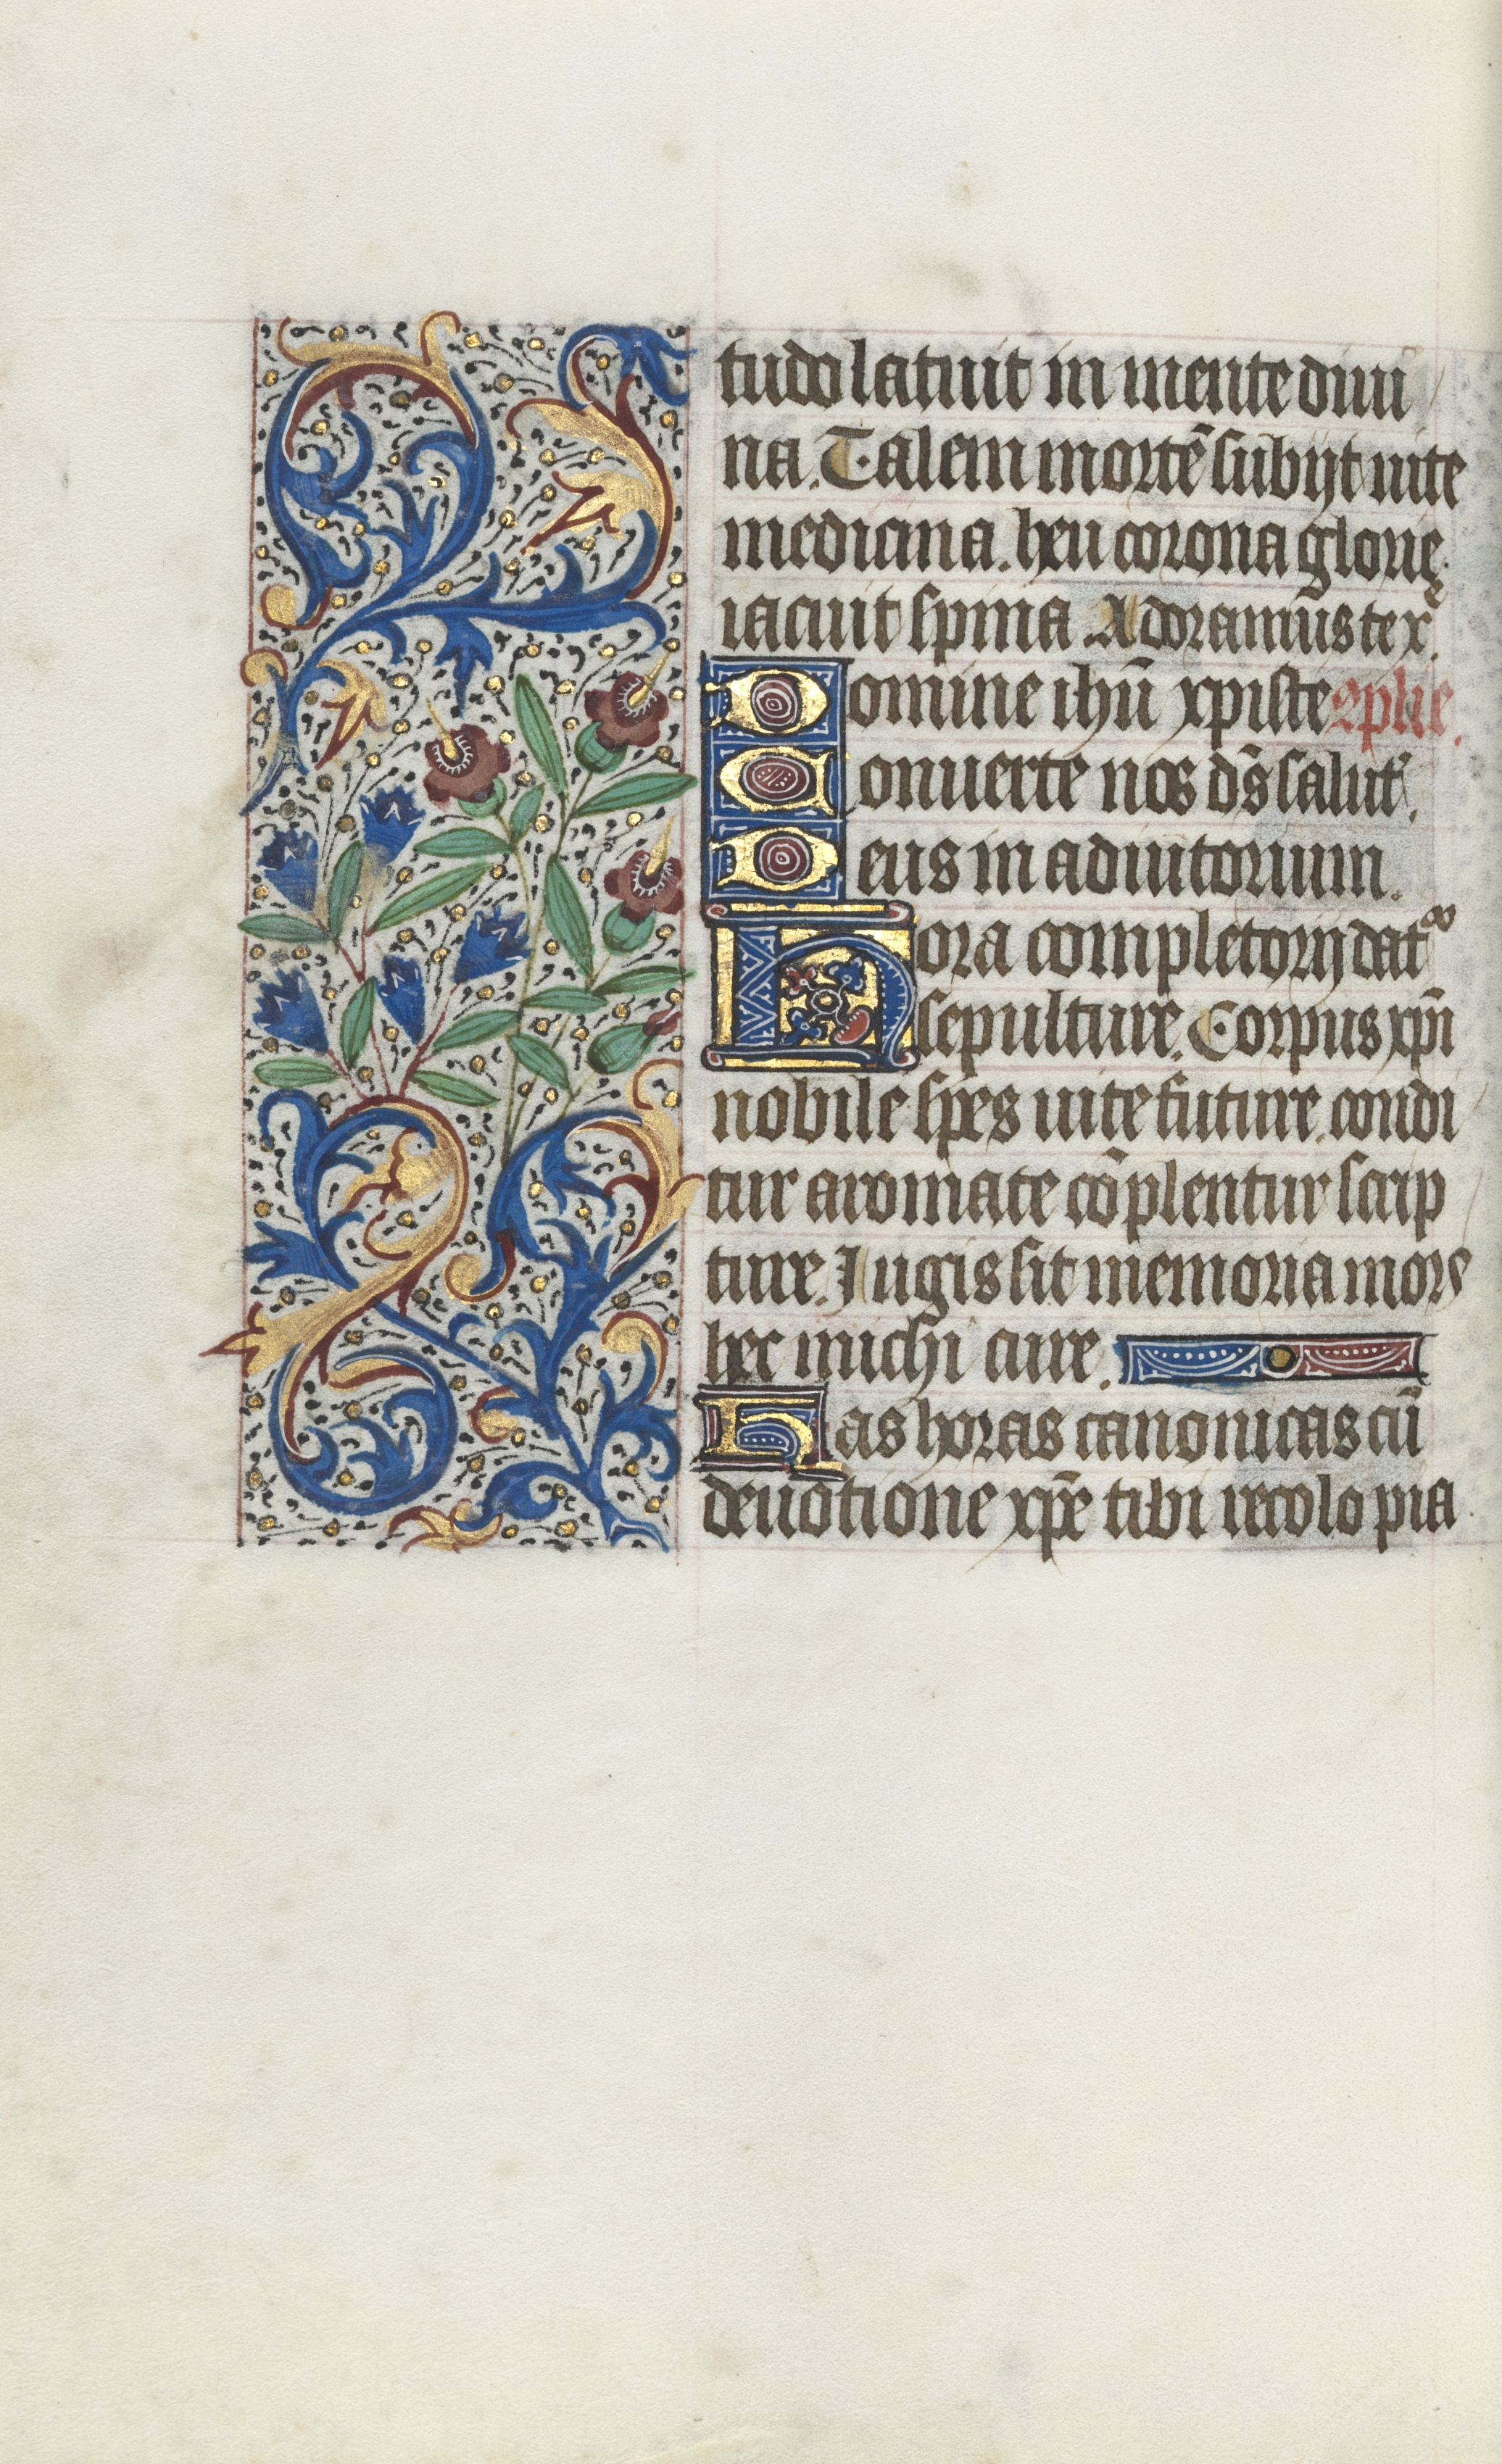 tudo latuit in mente diui
na. Talem mortē subijt uite
medicina. heu corona glorie
iacuit spina. Adoramus te x.
Domine ihū xpiste
Conuerte nos dš salut.
Deus in adiutorium.
Hora completorij dat᷑
sepulture. Corpus xpī
nobile spes uite future. condi
tur aromate cōplentur scrip
ture. Iugis sit memoria mors
hec michi cure.
Has horas canonicas cū
deuotione xpē tibi recolo pia